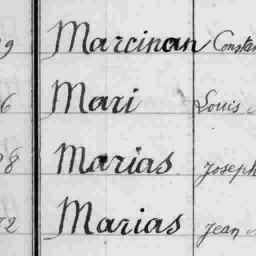 9 Marcinan Constan
6 Mari Louis
8 Marias Joseph
72 Marias Jean